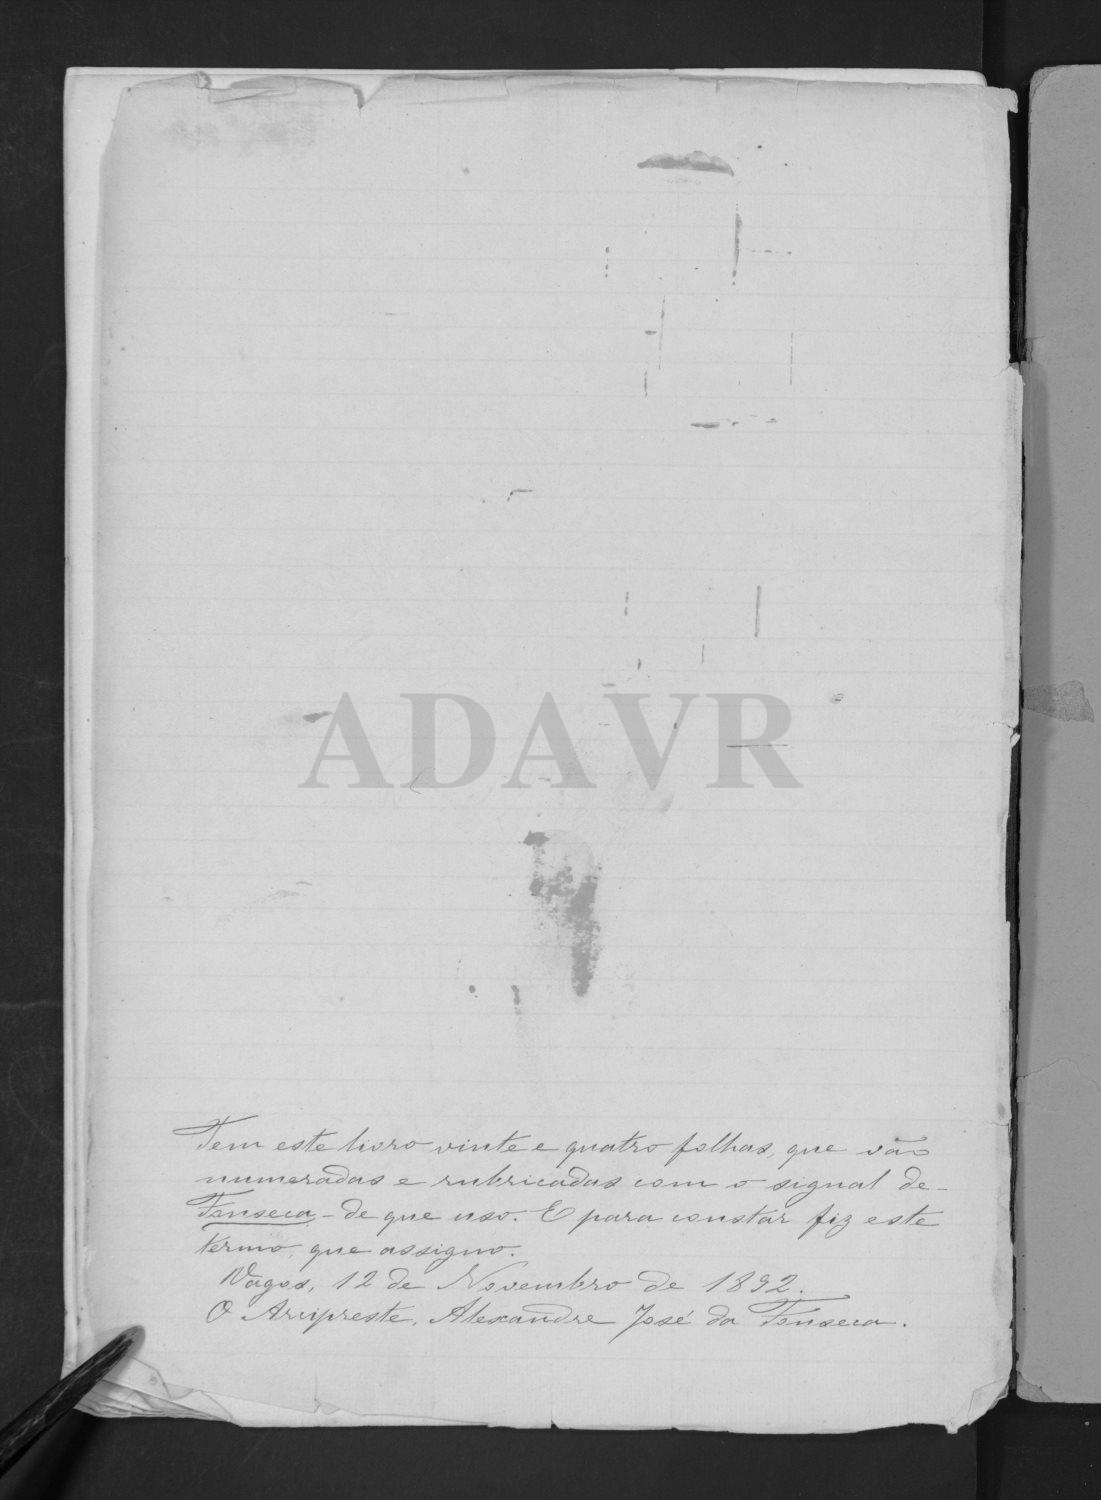 ADAVR
Tem este livro vinte e quatro folhas, que vão
numeradas e rubricadas com o signal de -
Fonseca, - de que uso. E para constar fiz este
termo, que assigno.
Vagos, 12 de Novembro de 1892.
O Arcipreste, Alexandre José da Fonseca.